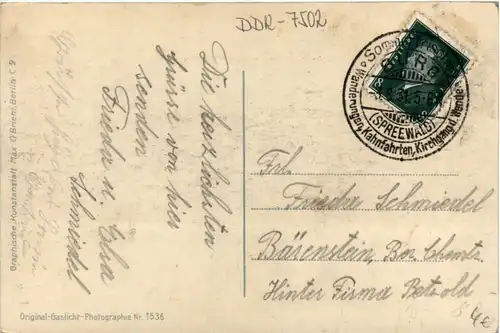 DDR-7502
Die herzlichsten
Grüsse von hier
senden
Frieda u. Erla
Schmiedel
Graphische Kunstanstalt Max O'Brien, Berlin C 9
Original-Gaslicht-Photographie Nr. 1536
BURG
(SPREEWALD)
Wanderungen, Kahnfahrten, Kirchgang d. Wende
Frl.
Frieda Schmiedel
Bärenstein, Bez. Chemtz.
Hinter Firma Betzold
4€